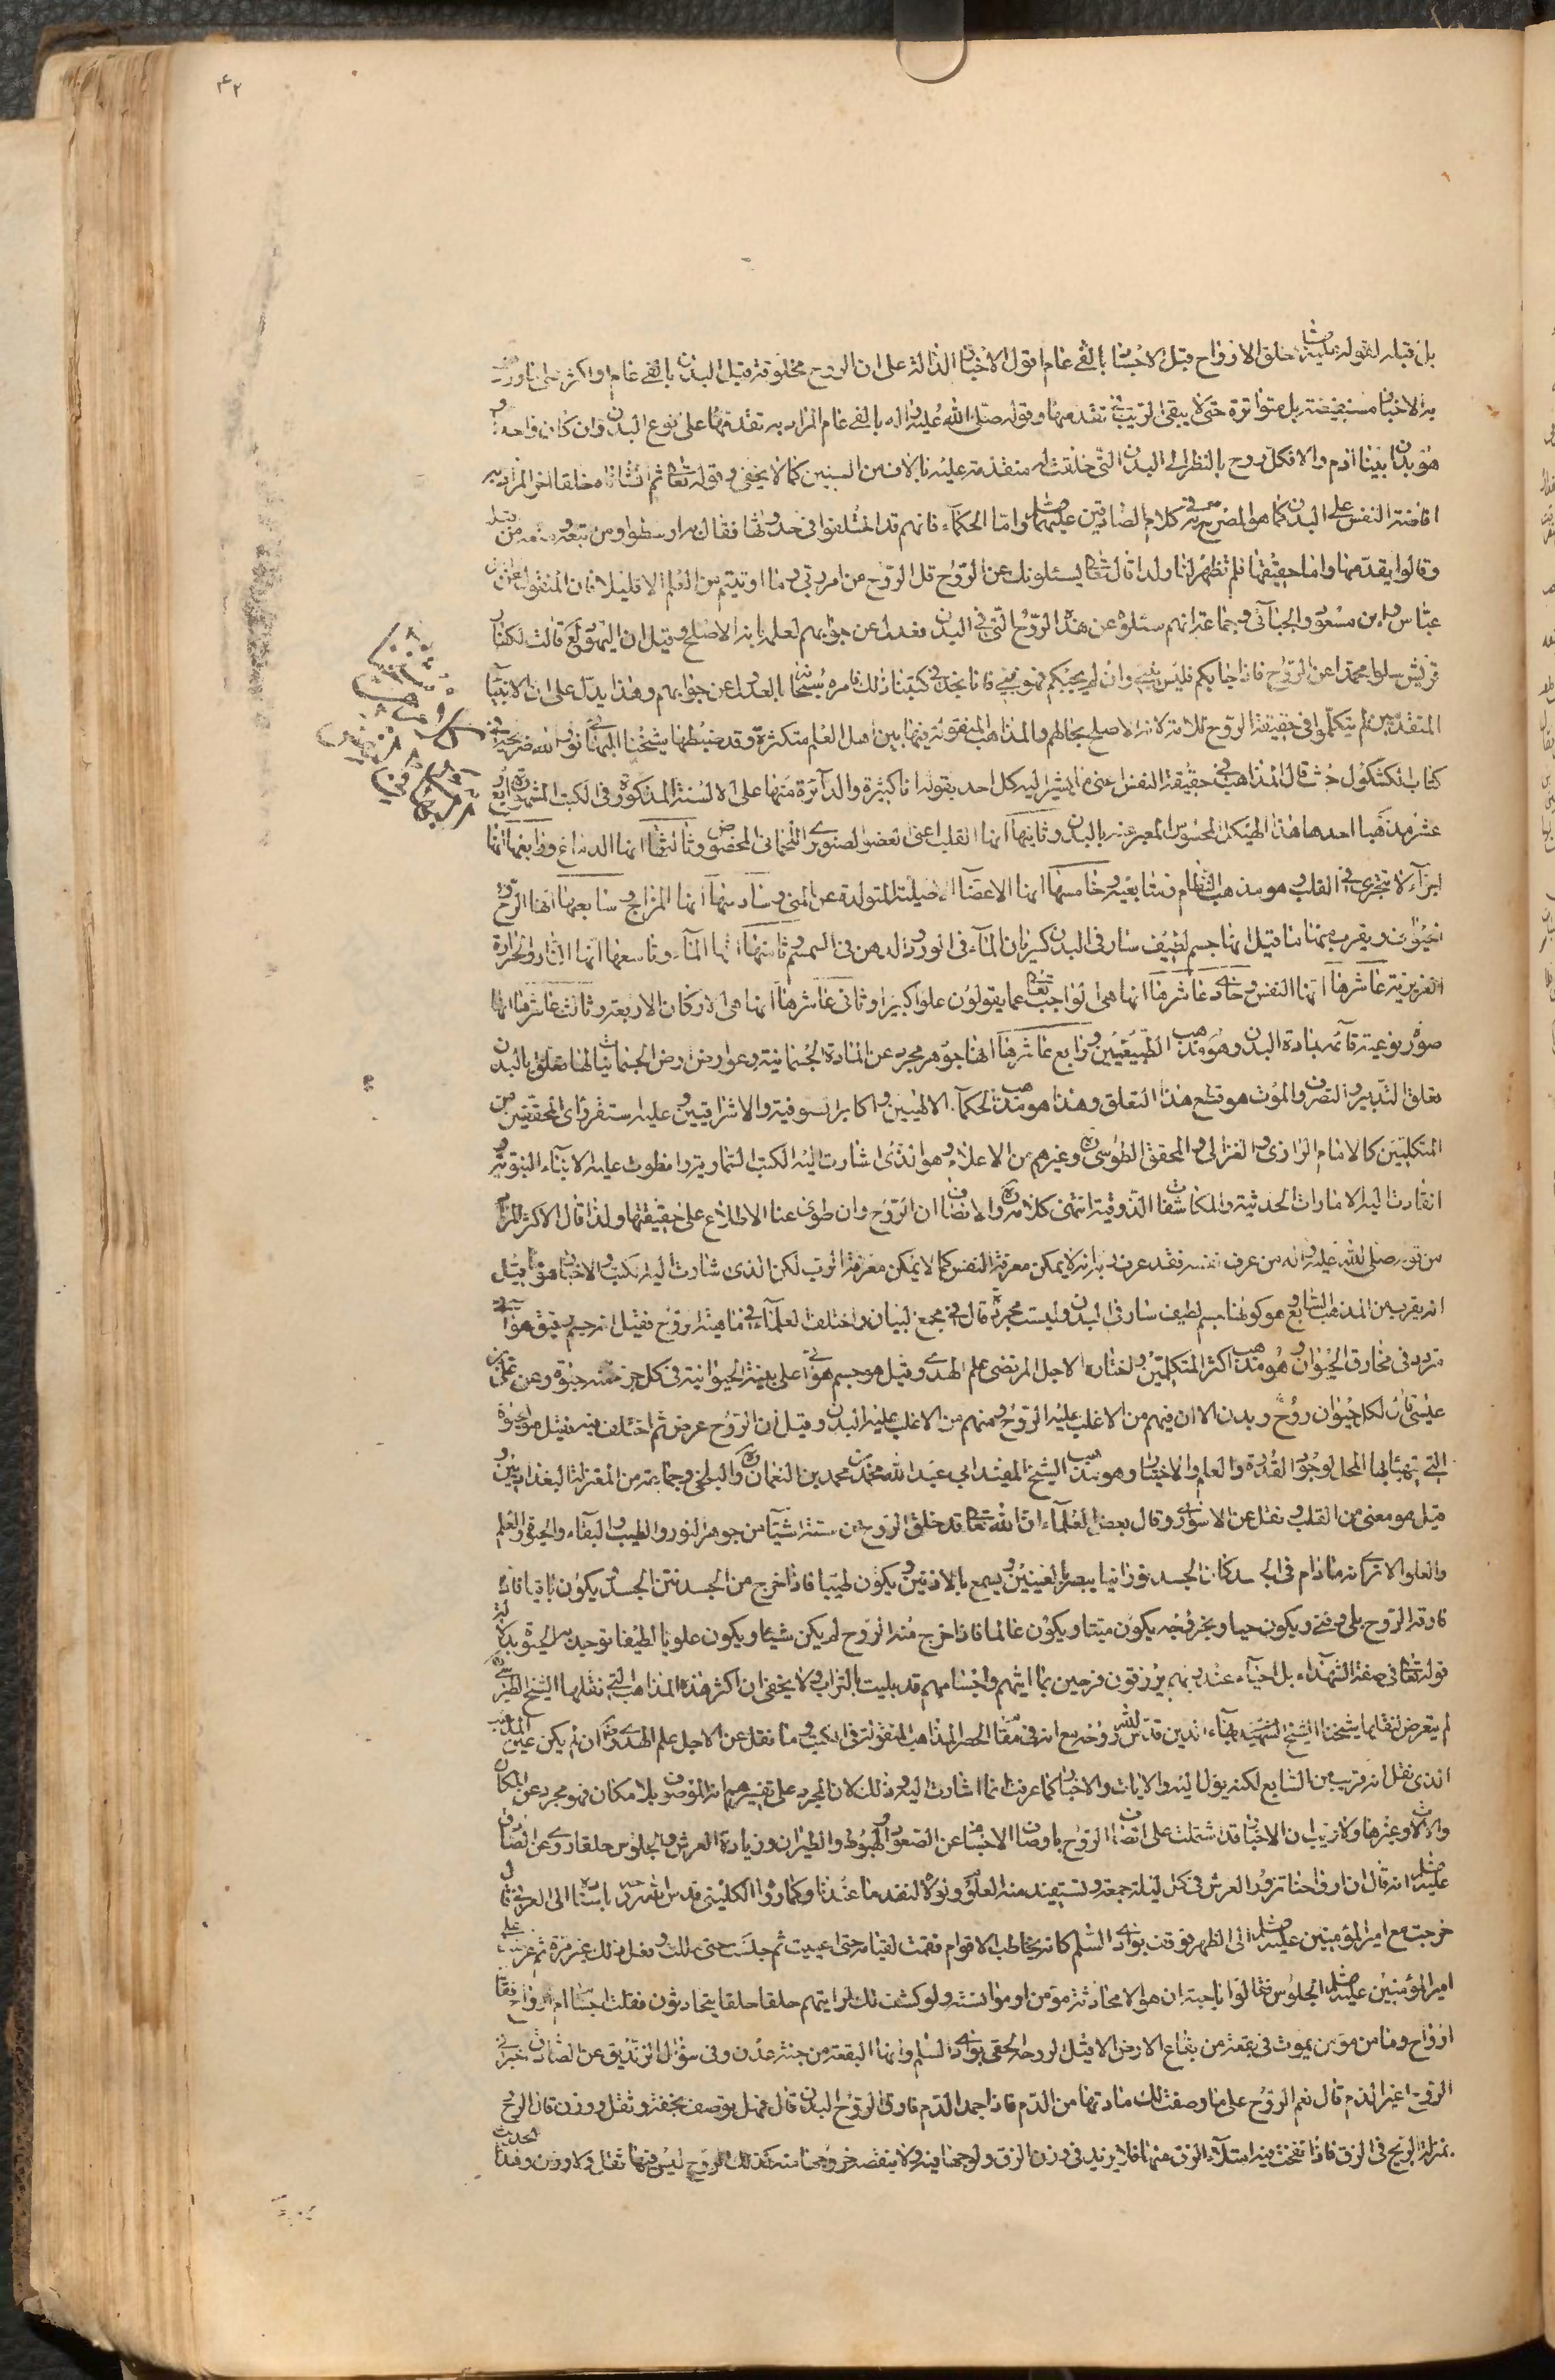 ٤٢
بل قبله لقوله عليه خلق الارواح قبل الاجساد بالفى عام اقول الاخبار الدالة على ان الروح مخلوقة قبل البدن بالفى عام او اكثر
به الاخبار مستفيضة بل متواترة حتى لا يبقى الريب فى تقدمها وقوله صلى الله عليه واله بالفى عام المراد به تقدمها على نوع البدن وان كان واحد
هو بدن ابينا ادم والا فكل روح بالنظر الى البدن التى خلقت له متقدمة عليه بالاف من السنين كما لا يخفى وقوله تعالى ثم انشاناه خلقا اخر المراد به
افاضة النفس على البدن كما هو المصرح به فى كلام الصادقين عليهما واما الحكماء فانهم قد اختلفوا فى حدوثها فقال به ارسطو ومن تبعه ومنعه من قبله
وقالوا بقدمها واما حقيقتها فلم تظهر لنا ولذا قال تعالى يسئلونك عن الروح قل الروح من امر ربى وما اوتيتم من العلم الا قليلا فان المنقول عن ابن
عباس وابن مسعود والجبائى وجماعة انهم سئلوه عن هذه الروح التى فى البدن فعدل عن جوابهم لعلمه بانه الاصلح وقيل ان اليهود قالت لكفار
قريش سلوا محمدا عن الروح فان اجابكم فليس بنبى وان لم يجبكم فهو نبى فانا نجد فى كتبنا ذلك فامره سبحانه بالعدول عن جوابهم وهذا يدل على ان الانبياء
المتقدمين لم يتكلموا فى حقيقة الروح للامة لانه الاصلح بحالهم والمذاهب المنقولة فيها بين اهل العلم متكثرة وقد ضبطها شيخنا البهائى نور الله ضريحه فى
كتاب الكشكول حيث قال المذاهب فى حقيقة النفس اعنى ما يشير اليه كل احد بقوله انا كثيرة والدائرة منها على الالسنة المذكورة فى الكتب المشهورة اربع
عشر مذهبا احدها هذا الهيكل المحسوس المعبر عنه بالبدن وثانيها انها القلب اعنى العضو الصنوبرى اللحمانى المخصوص وثالثها انها الدماغ ورابعها انها
اجزاء لا تتجزى فى القلب وهو مذهب النظام ومتابعيه وخامسها انها الاعضاء الاصلية المتولدة عن المنى وسادسها انها المزاج وسابعها انها الروح
الحيوانى ويقرب منها ما قيل انها جسم لطيف سار فى البدن كسريان الماء فى الورد والدهن فى السمسم وثامنها انها الماء وتاسعها انها النار والحرارة
الغريزية عاشرها انها النفس وحادى عاشرها انها هى الواجب تعالى عما يقولون علوا كبيرا وثانى عاشرها انها هى الاركان الاربعة وثالث عاشرها انها
صورة نوعية قائمة بمادة البدن وهو مذهب الطبيعيين ورابع عاشرها انها جوهر مجرد عن المادة الجسمانية وعوارض الجسمانيات لها تعلق بالبدن
تعلق التدبير والتصرف والموت هو قطع هذا التعلق وهذا هو مذهب الحكماء الالهيين واكابر الصوفية والاشراقيين وعليه استقر راى المحققين من
المتكلمين كالامام الرازى والغزالى والمحقق الطوسى وغيرهم من الاعلام وهو الذى اشارت اليه الكتب السماوية وانطوت عليه الانباء النبوية و
انقادت اليه الامارات الحدسية والمكاشفات الذوقية انتهى كلامه والانصاف ان الروح وان طوى عنا الاطلاع على حقيقتها ولذا قال الاكثر المراد
من قوله صلى الله عليه واله من عرف نفسه فقد عرف ربه انه لا يمكن معرفة النفس كما لا يمكن معرفة الرب لكن الذى اشارت اليه الكتب والاخبار هو ما قيل
انه يقرب من المذهب السابع وهو كونها جسم لطيف سار فى البدن وليست مجردة قال فى مجمع البيان واختلف العلماء فى ماهية الروح فقيل انه جسم رقيق هوائى
متردد فى مخارق الحيوان وهو مذهب اكثر المتكلمين واختاره الاجل المرتضى علم الهدى وقيل هو جسم هوائى على بنية الحيوانية فى كل جزء منه حيوة وعن على بن
عيسى قال لكل حيوان روح وبدن الا ان فيهم من الاغلب عليه الروح ومنهم من الاغلب عليه البدن وقيل ان الروح عرض ثم اختلف فيه فقيل هو الحيوة
التى يتهيا بها المحل لوجود القدرة والعلم والاختيار وهو مذهب الشيخ المفيد ابى عبد الله محمد بن محمد بن النعمان والبلخى وجماعة من المعتزلة البغداديين و
قيل هو معنى من القلب ونقل عن الاسوارى وقال بعض العلماء ان الله تعالى قد خلق الروح من ستة اشياء من جوهر النور والطيب والبقاء والحيوة والعلم
والعلو الا ترى انه ما دام فى الجسد كان الجسد نورانيا يبصر بالعينين ويسمع بالاذنين ويكون طيبا فاذا خرج من الجسد نتن الجسد ويكون باقيا فاذا
فارقه الروح بلى وفنى ويكون حيا وبخروجه يكون ميتا ويكون عالما فاذا خرج منه الروح لم يكن شيئا ويكون علويا لطيفا توجد به الحيوة بدلالة
قوله تعالى فى صفة الشهداء بل احياء عند ربهم يرزقون فرحين بما اتيهم واجسامهم قد بليت بالتراب ولا يخفى ان اكثر هذه المذاهب التى نقلها الشيخ الطبرسى
لم يتعرض لنقلها شيخنا الشيخ الشهيد بهاء الدين قدس الله روحه مع انه فى مقام الحصر المذاهب المنقولة فى الكتب وما نقل عن الاجل علم الهدى ان لم يكن عين المذهب
الذى نقل انه قريب من السابع لكنه يؤل اليه والايات والاخبار كما عرفت انما اشارت اليه وذلك لان المجرد على تفسيرهم انه الموصوف بلا مكان فهو مجرد عن المكان
والالات وغيرها ولا ريب ان الاخبار قد اشتملت على اتصاف الروح باوصاف الاجسام عن الصعود والهبوط والطيران وزيادة العرش والجلوس حلقا روى عن الصادق
عليه انه قال ان ارواحنا تزور العرش فى كل ليلة جمعة وتستفيد منه العلوم ولولا ذلك لنفد ما عندنا وكما روا الكلينى قدس الله روحه باسناده الى العرنى قال
خرجت مع امير المؤمنين عليه الى الظهر فوقف بوادى السلم كانه يخاطب الاقوام فقمت لقيامه حتى اعييت ثم جلست حتى مللت وفعل ذلك غير مرة ثم عرضت على
امير المؤمنين عليه الجلوس فقال لى يا حبة ان هو الا محادثة مؤمن او مؤانسته ولو كشف لك لرايتهم حلقا حلقا يتحادثون فقلت اجسام ام ارواح فقال
ارواح وما من مؤمن يموت فى بقعة من بقاع الارض الا قيل لروحه الحقى بوادى السلم وانها البقعة من جنة عدن وفى سؤال الزنديق عن الصادق اخبرنى
الروح اغير الدم قال نعم الروح على ما وصفت لك مادتها من الدم فاذا جمد الدم فارق الروح البدن قال فهل يوصف بخفة وثقل ووزن قال الروح
بمنزلة الريح فى الزق فاذا نفخت فيه امتلاء الزق منها فلا يزيد فى وزن الزق ولوجها فيه ولا ينقصه خروجها منه كذلك الروح ليس فيها ثقل ولا وزن الحديث وهذا